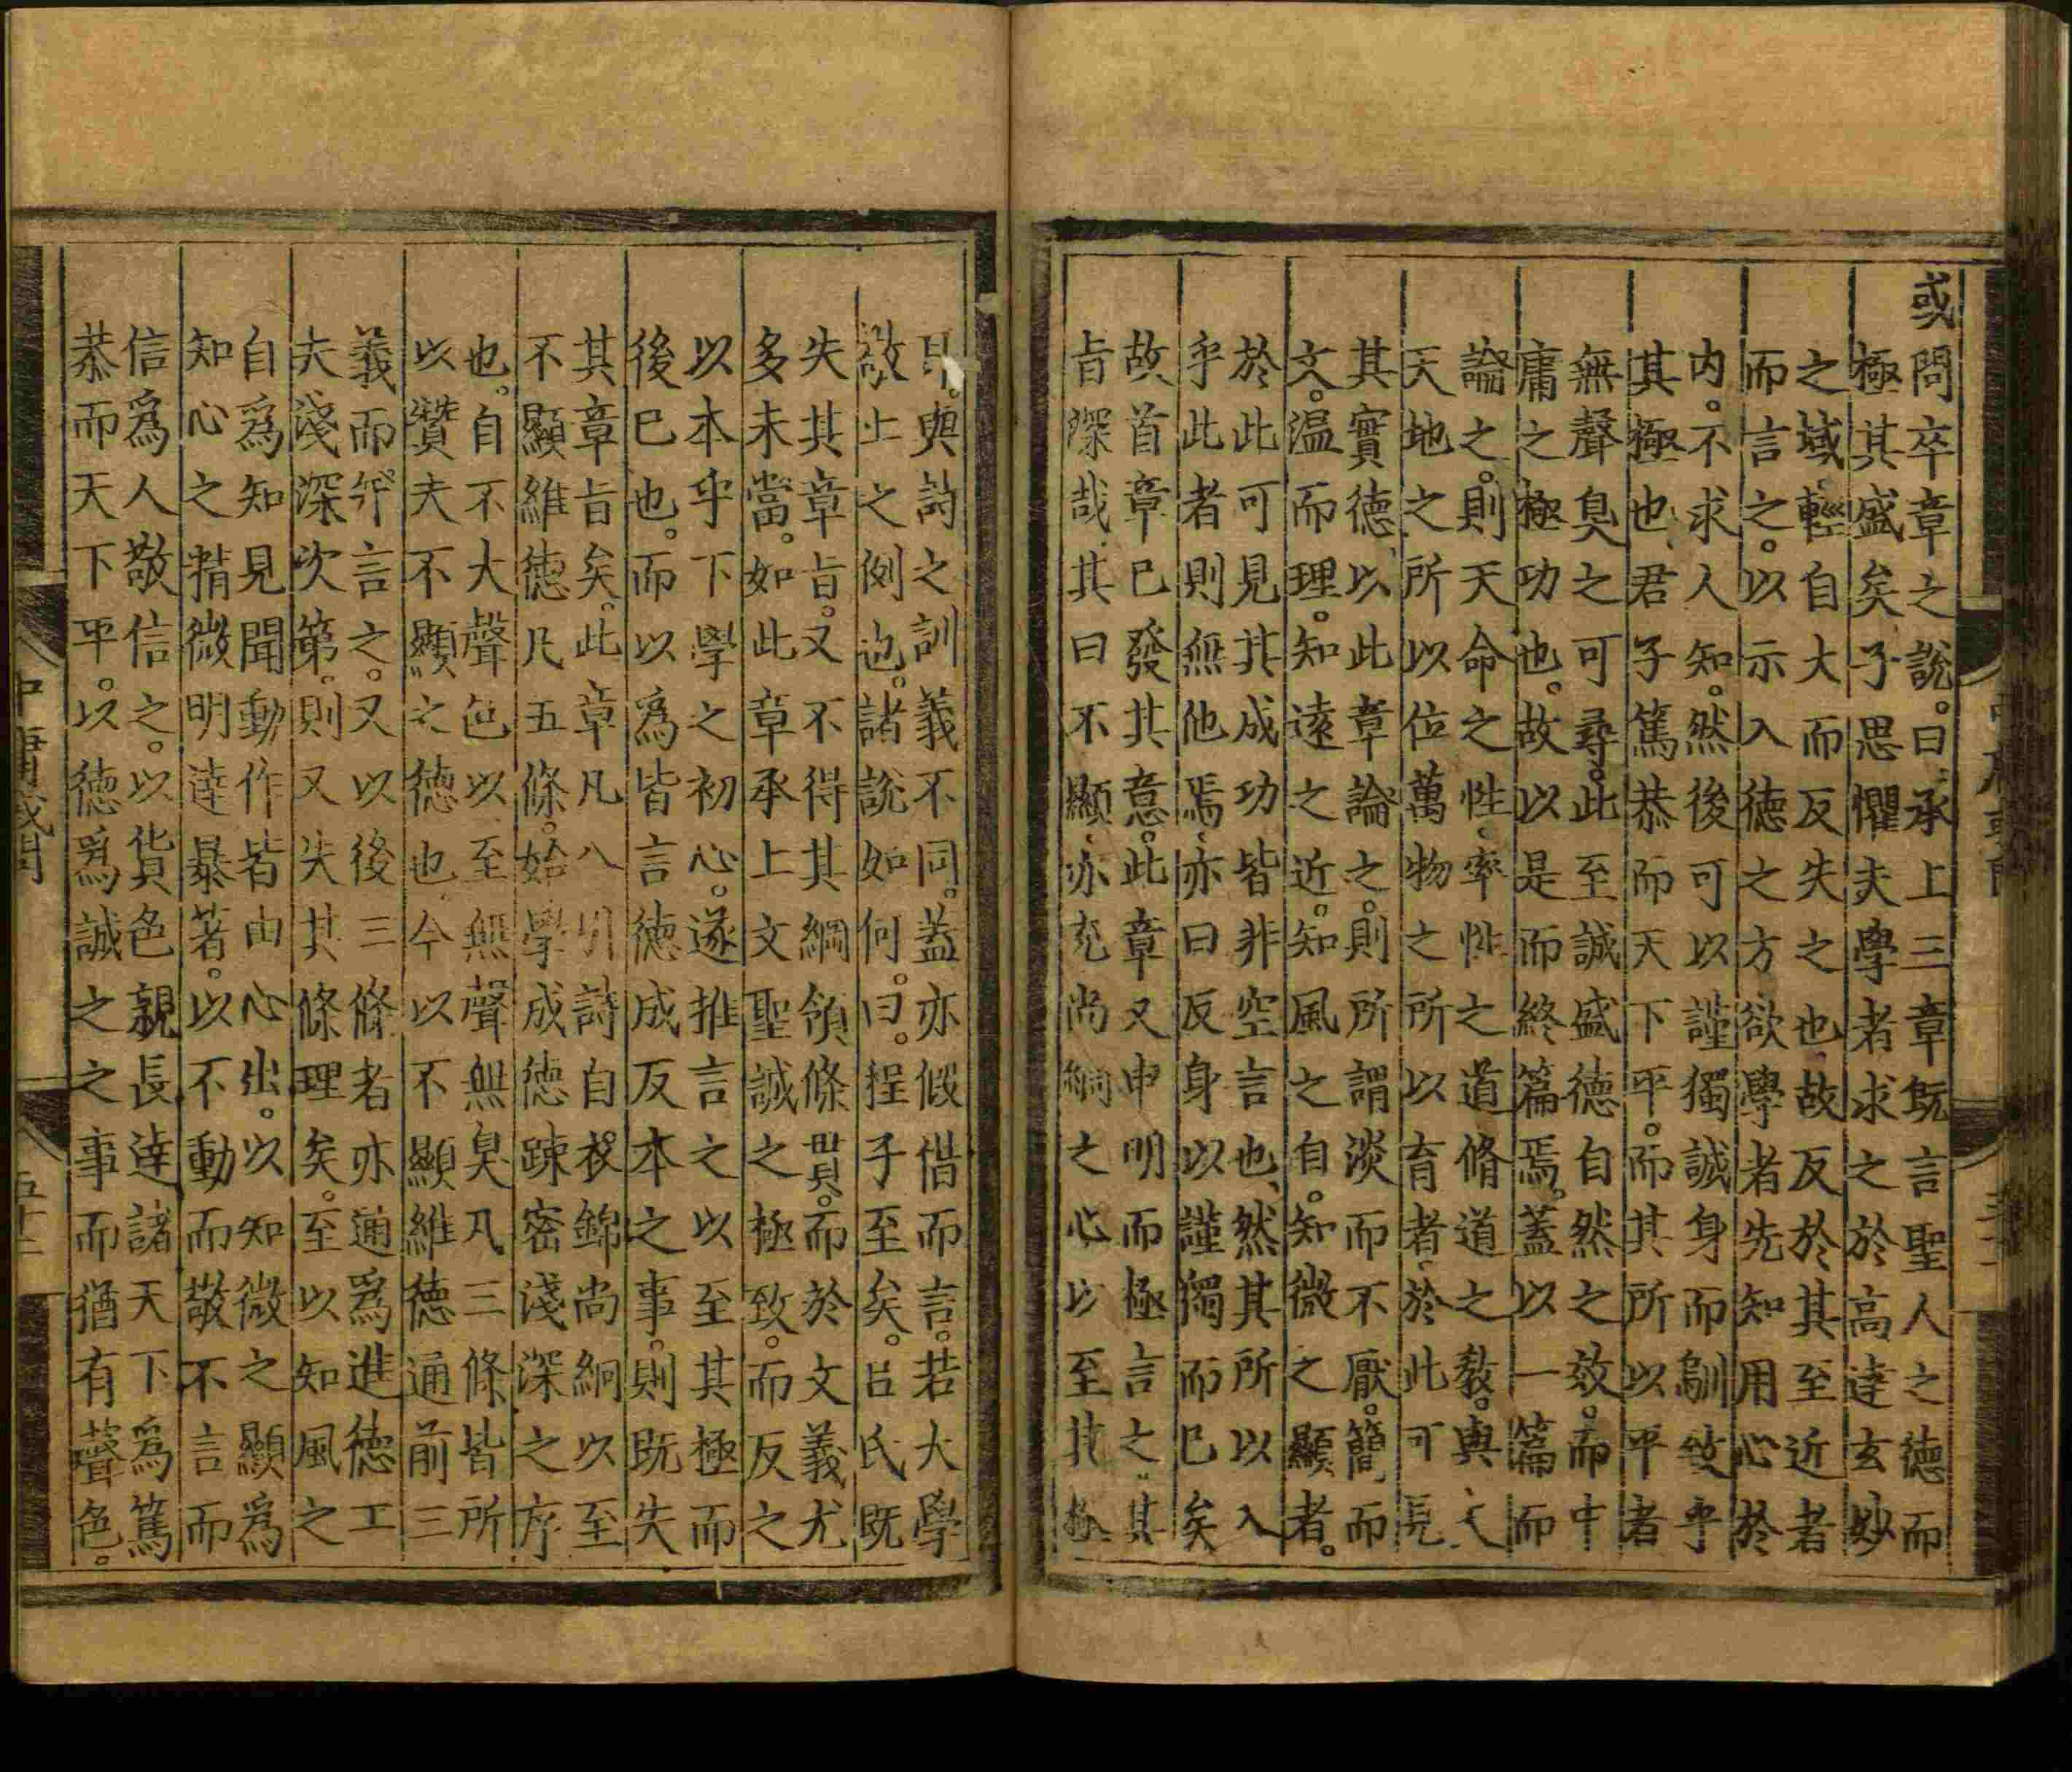 或問卒章之說。曰承上三章旣言聖人之德而
極其盛矣子思懼夫學者求之於高遠玄妙
之域輕自大而反失之也故反於其至近者
而言之。以示入德之方欲學者先知用心於
内。不求人知。然後可以謹獨誠身而馴致乎
其極也君子篤恭而天下平。而其所以平者
無聲臭之可尋。此至誠盛德自然之效。而中
庸之極功也。故以是而終篇焉。蓋以一篇而
論之。則天命之性率性之道脩道之敎。與
天地之所以位萬物之所以育者於此可見
其實德以此章論之。則所謂淡而不厭。簡而
文。温而理。知遠之近。知風之自。知微之顯者。
於此可見其成功皆非空言也然其所以入
乎此者則無他焉亦曰反身以謹獨而已矣
故首章已發其意。此章又申明而極言之其
旨深哉其曰不顯亦充尚絅之心以至其極
與詩之訓義不同。蓋亦假借而言。若大學
敬止之例也。諸說如何。曰。程子至矣。呂氏旣
失其章旨。又不得其綱領條貫。而於文義尤
多未當。如此章承上文聖誠之極致。而反之
以本乎下學之初心。遂推言之以至其極而
後已也。而以爲皆言德成反本之事。則旣失
其章旨矣。此章凡八引詩自衣錦尚絅以至
不顯維德凡五條。始學成德踈密淺深之序
也。自不大聲色以至無聲無臭凡三條皆所
以贊夫不顯之德也今以不顯維德通前三
義而幷言之。又以後三條者亦通爲進德工
夫淺深次第。則又失其條理矣。至以知風之
自爲知見聞動作皆由心出。以知微之顯爲
知心之精微明達暴著。以不動而敬不言而
信爲人敬信之。以貨色親長達諸天下爲篤
恭而天下平。以德爲誠之之事而猶有聲色。
中庸或問